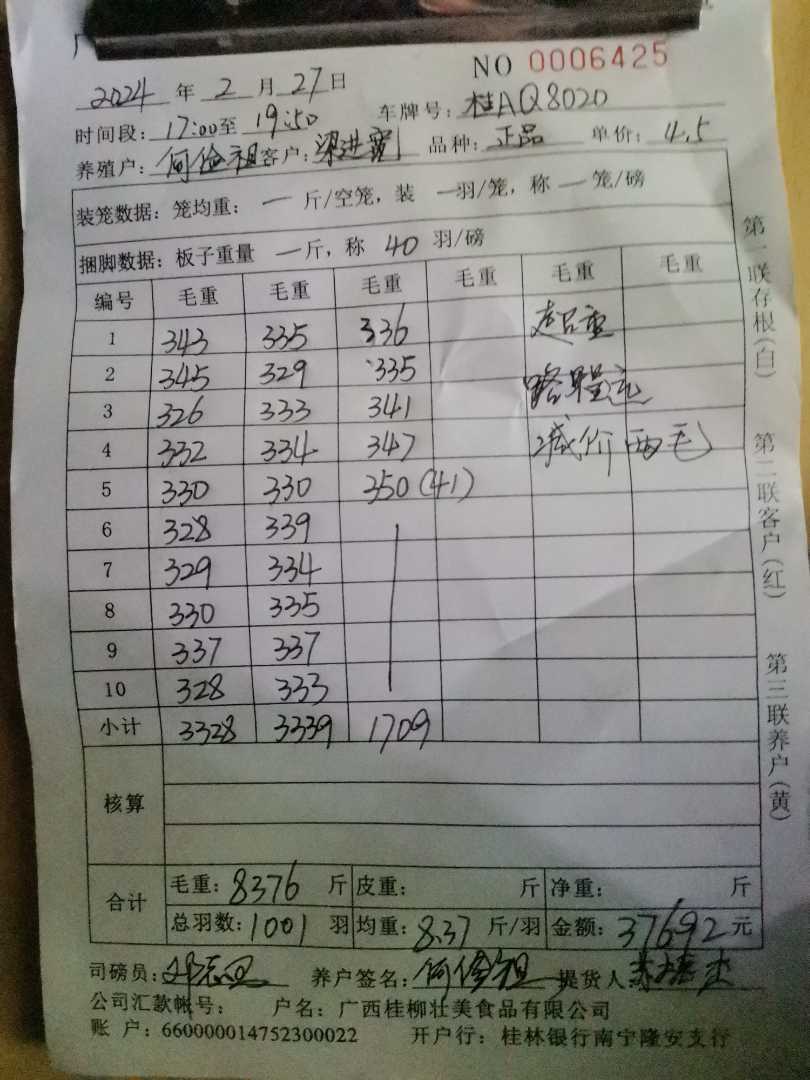 NO 0006425
2024 年 2 月 27 日
时间段: 17:00至 19:50 车牌号: 桂AQ8020
养殖户: 何俭祖 客户: 梁进寳 品种: 正品 单价: 4.5
装笼数据: 笼均重: 一 斤/空笼, 装 一羽/笼, 称 一 笼/磅
捆脚数据: 板子重量 一斤, 称 40 羽/磅
编号 毛重 毛重 毛重 毛重 毛重 毛重
1 343 335 336 超重
2 345 329 335 路程远
3 326 333 341
4 332 334 347 减价两毛
5 330 330 350(41)
6 328 339
7 329 334
8 330 335
9 337 337
10 328 333
小计 3328 3339 1709
核算
合计
毛重: 8376 斤 皮重: 斤 净重: 斤
总羽数: 1001 羽 均重: 8.37 斤/羽 金额: 37692 元
司磅员: 养户签名: 何俭祖 提货人:
公司汇款帐号: 户名: 广西桂柳壮美食品有限公司
账 户: 660000014752300022 开户行: 桂林银行南宁隆安支行
第一联存根(白) 第二联客户(红) 第三联养户(黄)